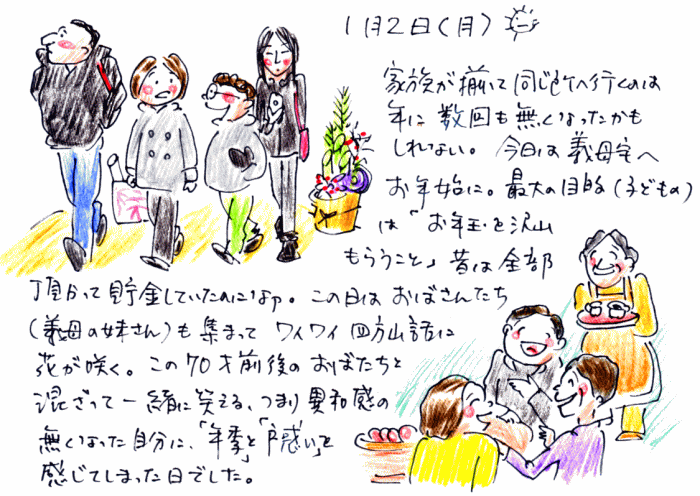 1月2日(月)
家族が揃って同じ所へ行くのは
年に数回も無くなったかも
しれない。今日は義母宅へ
お年始に。最大の目的(子どもの)
は「お年玉を沢山
もらうこと」昔は全部
預かって貯金していたのになア。この日はおばさんたち
(義母の妹さん)も集まってワイワイ四方山話に
花が咲く。この70才前後のおばたちと
混ざって一緒に笑える、つまり異和感の
無くなった自分に、「年季」と「戸惑い」を
感じてしまった日でした。